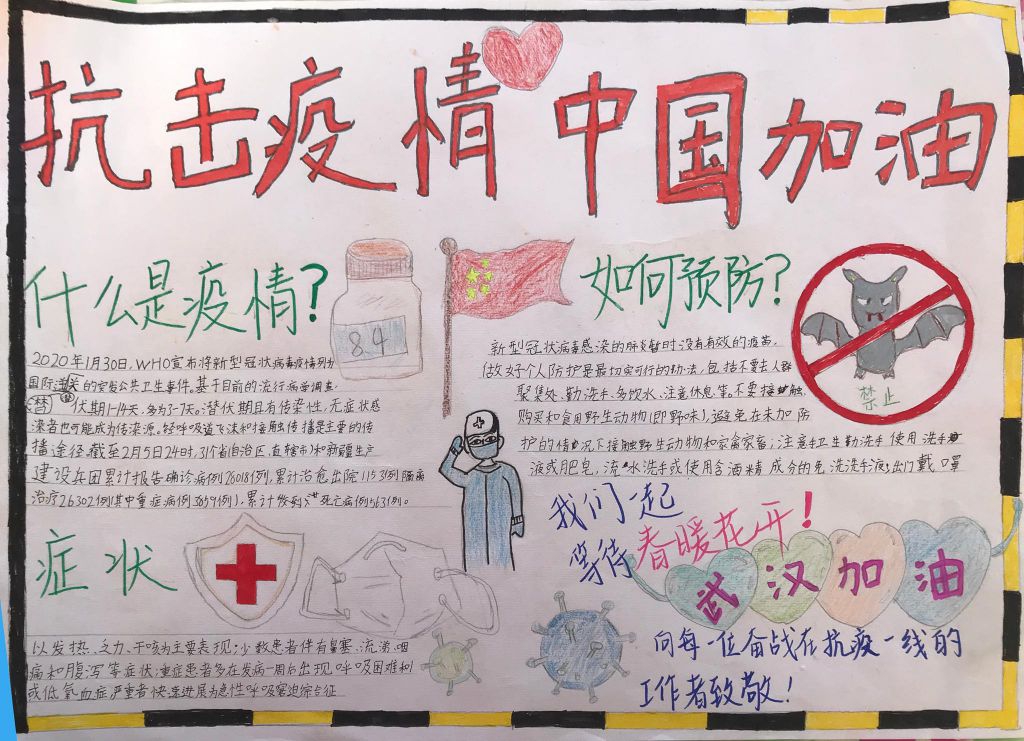 抗击疫情 中国加油
什么是疫情?
84
2020年1月30日，WHO宣布将新型冠状病毒疫情列为
国际关的突发公共卫生事件。基于目前的流行病学调查，
(潜)伏期1-14天，多为3-7天。潜伏期且有传染性，无症状感
染者也可能成为传染源。经呼吸道飞沫和接触传播是主要的传
播途径。截至2月5日24时，31个省(自治区、直辖市)和新疆生产
建设兵团累计报告确诊病例28018例，累计治愈出院1153例隔离
治疗26302例(其中重症病例3859例)，累计死亡病例563例。
症状
以发热、乏力、干咳为主要表现；少数患者伴有鼻塞、流涕、咽
痛和腹泻等症状；重症患者多在发病一周后出现呼吸困难和/
或低氧血症严重者快速进展为急性呼吸窘迫综合征
如何预防?
新型冠状病毒感染的肺炎暂时没有有效的疫苗，
做好个人防护是最切实可行的办法，包括不要去人群
聚集处、勤洗手、多饮水、注意休息等。不要接触、
购买和食用野生动物(即野味)，避免在未加防
护的情况下接触野生动物和家禽家畜；注意手卫生勤洗手使用洗手
液或肥皂，流水洗手或使用含酒精成分的免洗洗手液；出门戴口罩
禁止
我们一起
等待春暖花开!
武汉加油
向每一位奋战在抗疫一线的
工作者致敬!